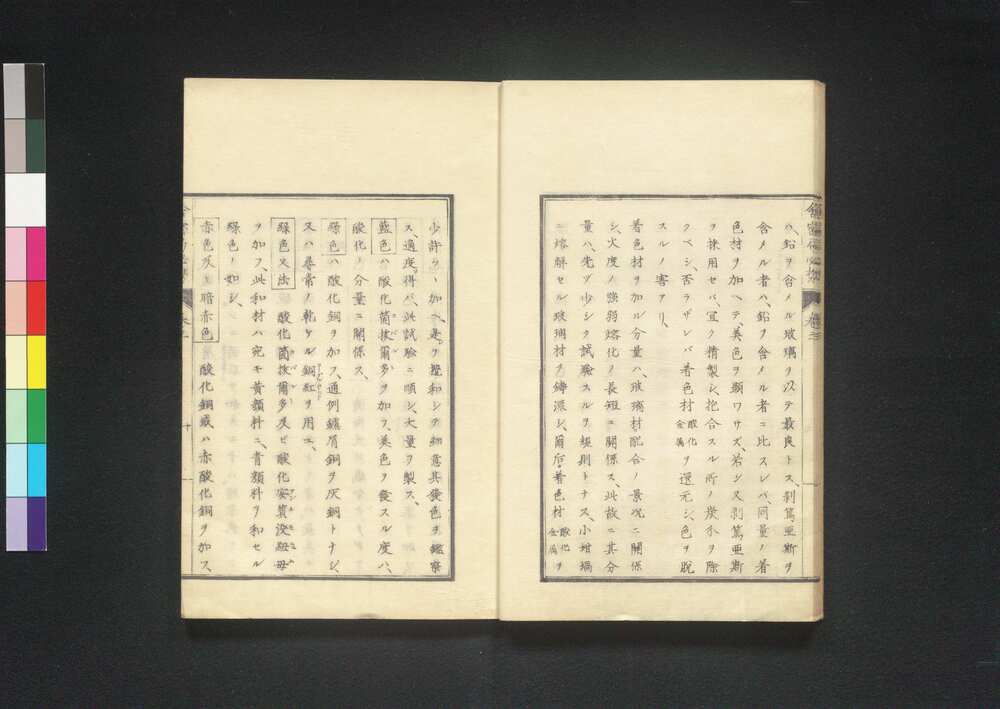 ハ、鉛ヲ含メル玻璃ヲ以テ最良トス、剥篤亜斯ヲ
含メル者ハ、鉛ヲ含メル者ニ比スレバ、同量ノ着
色材ヲ加ヘテ、美色ヲ顕ワサズ、若シ又剥篤亜斯
ヲ採用セバ、宜ク精製シ、抱合スル所ノ炭水ヲ除
クベシ、否ラザレバ着色材酸化金属ヲ還元シ、色ヲ脱
スルノ害アリ、
着色材ヲ加ル分量ハ、玻璃材配合ノ景况ニ関係
シ、火度ノ強弱熔化ノ長短ニ関係ス、此故ニ其分
量ハ、先ヅ少シク試験スルヲ規則トナス、小坩堝
ニ熔解セル玻璃材ヲ鋳派シ、爾后着色材酸化金属ヲ
少許ヅヽ加ヘ、是ヲ攪和シテ細意其發色ヲ鑑察
ス、適度ヲ得バ、此試験ニ順シ、大量ヲ製ス、
藍色ハ酸化箇抜爾多ヲ加フ、美色ヲ發スル度ハ、
酸化ノ分量ニ関係ス、
緑色ハ酸化銅ヲ加ス、通例鑢屑銅ヲ灰銅トナシ、
又ハ尋常ノ乾ケル銅紅ヲ用ユ、
緑色又法 酸化箇抜爾多及ビ酸化安質没紐母
ヲ加フ、此和材ハ宛モ黄顔料ニ、青顔料ヲ和セル
緑色ノ如シ、
赤色及ヒ暗赤色 酸化銅或ハ赤酸化銅ヲ加ス、